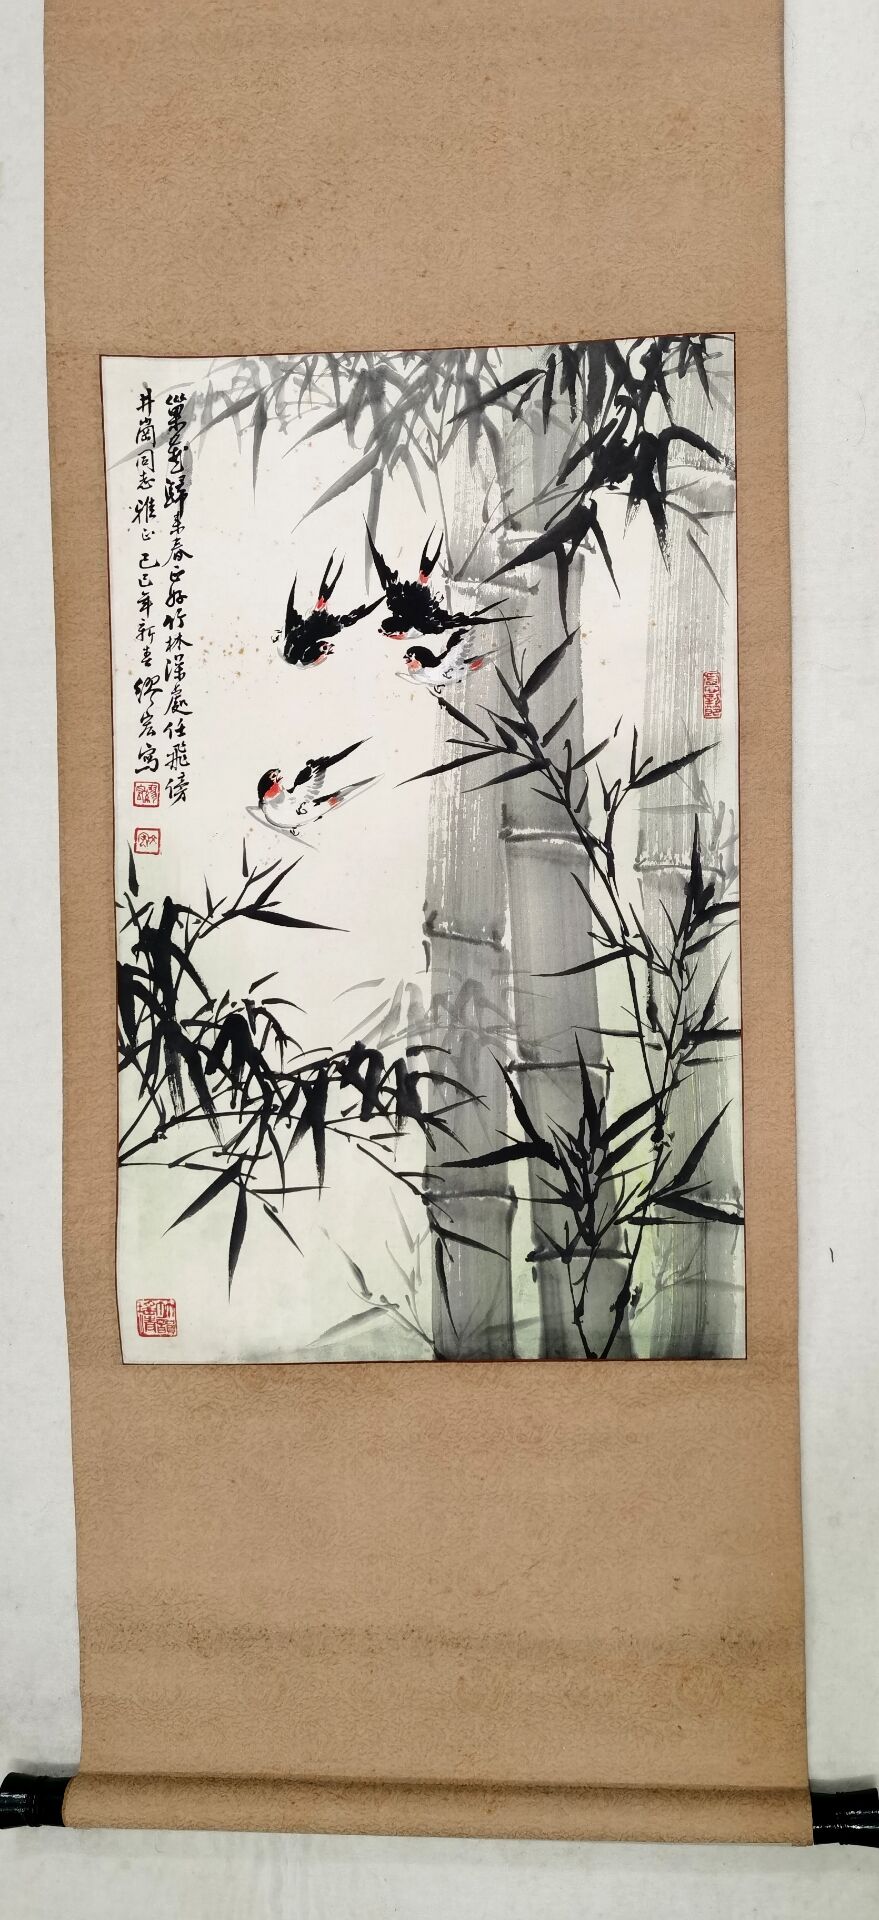 巢燕歸来春正好竹林深處任飛傍
井崗同志雅正己巳年新春繆宏寫